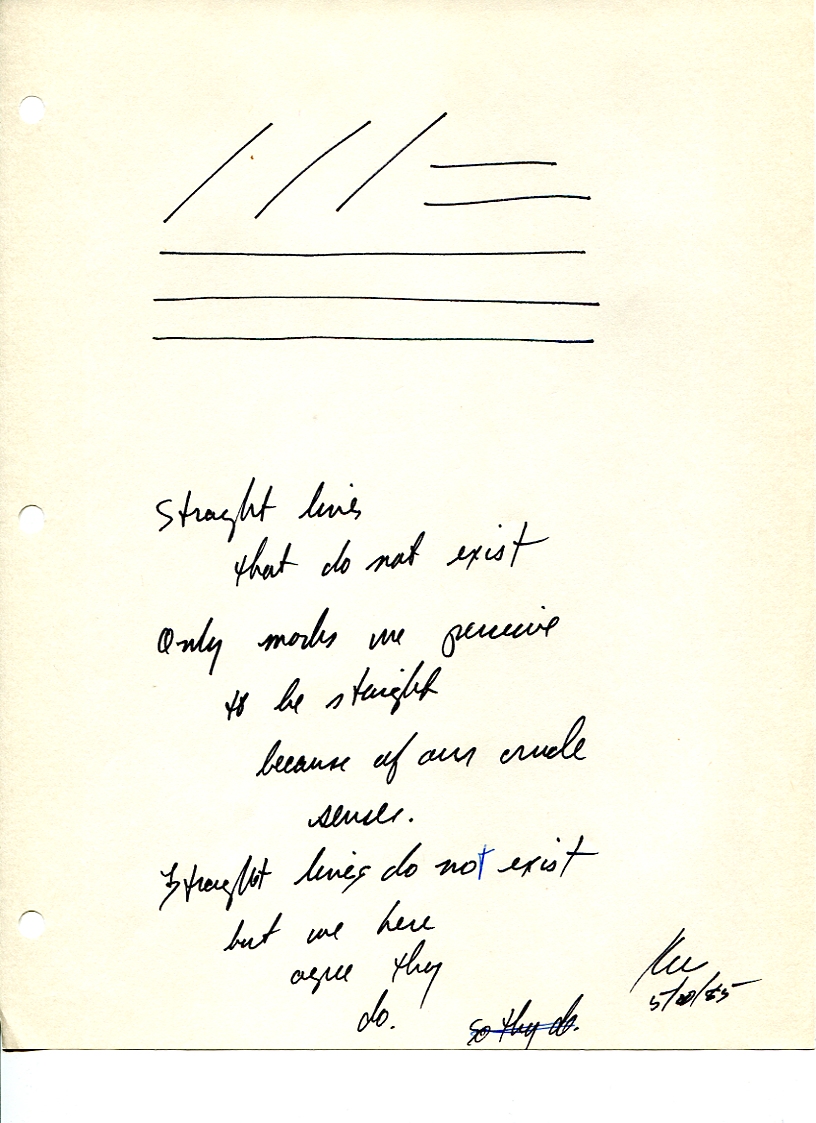 Straight lines
that do not exist
Only marks we perceive
to be staight
because of our crude
senses.
Straight lines do not exist
but we here
agree they
do.
so they do.
5/20/85